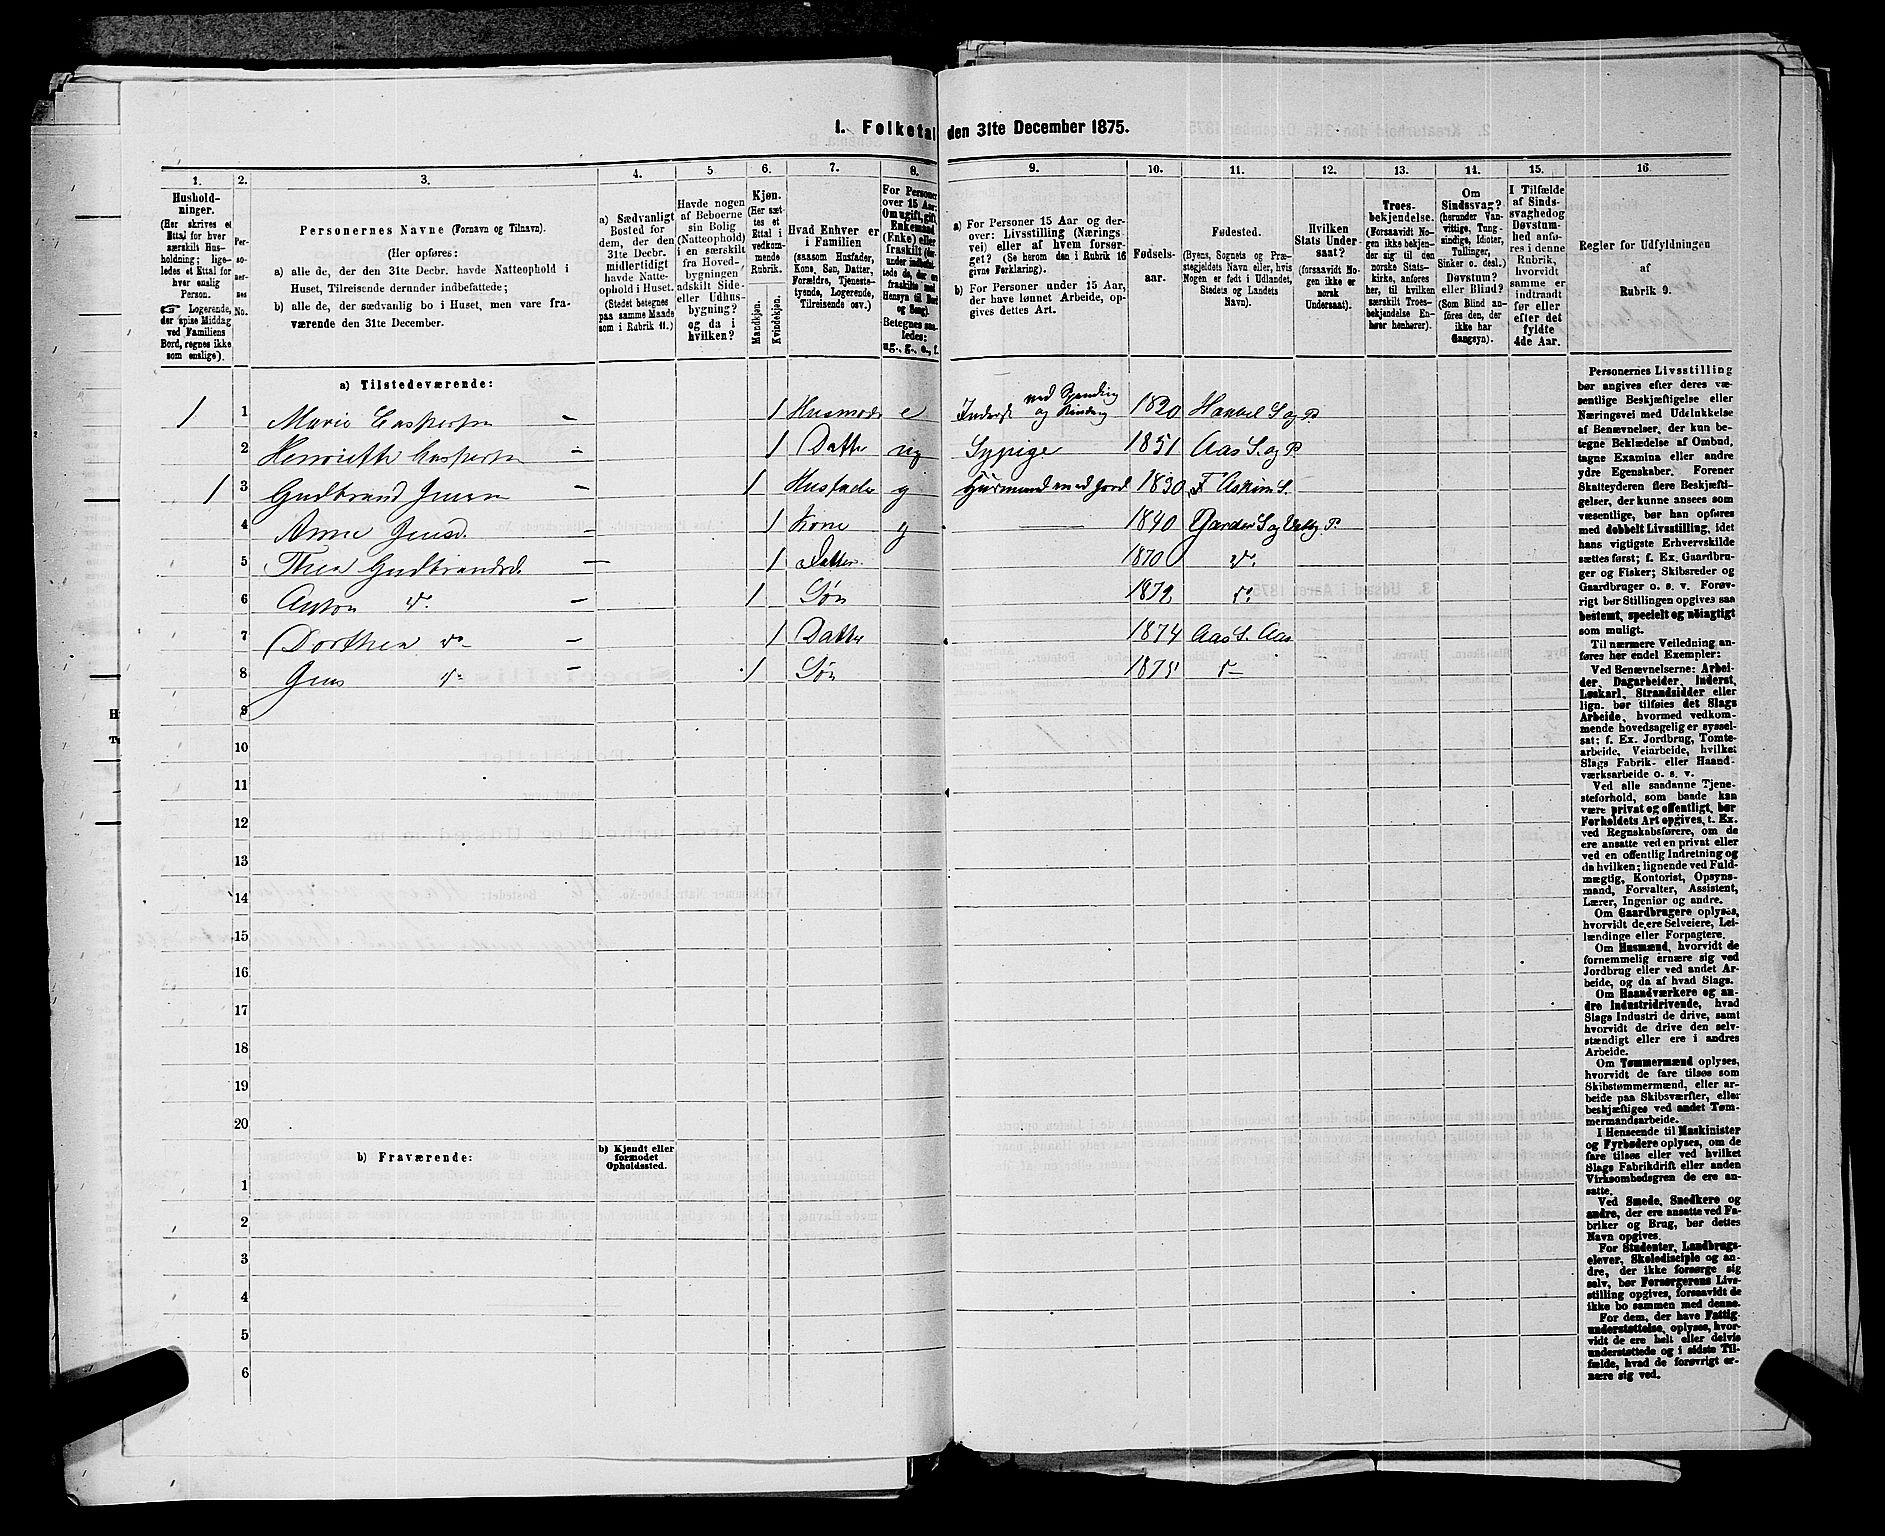 1. Folketal den 31te December 1875.
1.
Hushold-
ninger.
(Her skrives et
Ettal for hver
særskilt Hus-
holdning; lige-
ledes et Ettal for
hver enslig
Person.
☞ Logerende,
der spise Middag
ved Familiens
Bord, regnes ikke
som enslige).
2.
Per-
so-
ner-
nes
No.
3.
Personernes Navne (Fornavn og Tilnavn).
(Her opføres:
a) alle de, der den 31te Decbr. havde Natteophold i
Huset, Tilreisende derunder indbefattede;
b) alle de, der sædvanlig bo i Huset, men vare fra-
værende den 31te December.
4.
a) Sædvanligt
Bosted for
dem, der den
31te Decbr.
midlertidigt
havde Natte-
ophold i Huset.
(Stedet betegnes
paa samme Maade
som i Rubrik 11.)
5.
Havde nogen
af Beboerne
sin Bolig
(Natteophold)
i en særskilt
fra Hoved-
bygningen
adskilt Side-
eller Udhus-
bygning?
og da i
hvilken?
6.
Kjøn.
(Her sæt-
tes et
Ettal i
vedkom-
mende
Rubrik.
Mandkjøn.
Kvindekjøn.
7.
Hvad Enhver er
i Familien
(saasom Husfader,
Kone, Søn, Datter,
Forældre, Tjeneste-
tyende, Logerende,
Tilreisende osv.)
8.
For Personer
over 15 Aar:
Om ugift, gift,
Enkemand
(Enke) eller
fraskilt
Betegnes saa-
ledes:
ug., g., e., f.
9.
a) For Personer 15 Aar og der-
over: Livsstilling (Nærings-
vei) eller af hvem forsør-
get? (Se herom den i Rubrik 16
givne Forklaring).
b) For Personer under 15 Aar,
der have lønnet Arbeide, op-
gives dettes Art.
10.
Fødsels-
aar.
11.
Fødested.
(Byens, Sognets og Præ-
stegjeldets Navn eller, hvis
Nogen er født i Udlandet,
Stedets og Landets
Navn).
12.
Hvilken
Stats Under-
saat?
(forsaavidt No-
gen ikke er
norsk
Undersaat).
13.
Troes-
bekjendelse.
(Forsaavidt No-
gen ikke bekjen-
der sig til den
norske Stats-
kirke, anføres,
til hvilken
særskilt Troes-
bekjendelse En-
hver henhører).
14.
Om
Sindssvag?
(herunder Van-
vittige, Tung-
sindige, Idioter,
Tullinger,
Sinker o. desl.)
Døvstum?
eller Blind?
(Som Blind an-
føres den, der
ikke har
Gangsyn).
15.
I Tilfælde
af Sinds-
svaghed og
Døvstum-
hed anfø-
res i denne
Rubrik,
hvorvidt
samme er
indtraadt
før eller
efter det
fyldte
4de Aar.
16
Regler for Udfyldningen
af
Rubrik 9.
a) Tilstedeværende:
1 1 Marie Caspersen – 1 Husmoder e Inderst med Spinding og Binding 1820 S og P.
2 Henriette Caspersen 1 Datter ug Sypige 1851 Aas S. og P.
1 3 Gudbrand Jensen – 1 Husfader g Husmand med Jord 1830 Askim S.
4 Anne Jensd. – 1 Kone g 1840 Garder S og Vestby P.
5 Thea Gudbrandsd. – 1 Datter 1870 do
6 Anton do – 1 Søn 1872 do
7 Dorthea do – 1 Datter 1874 Aas S. Aas
8 Jens do – 1 Søn 1875 do
9
10
11
12
13
14
15
16
17
18
19
20
b) Fraværende:
b) Kjendt eller
formodet
Opholdssted.
1
2
3
4
5
6
Personernes Livsstilling
bør angives efter deres væ-
sentlige Beskjæftigelse eller
Næringsvei med Udelukkelse
af Benævnelser, der kun be-
tegne Beklædelse af Ombud,
tagne Examina eller andre
ydre Egenskaber. Forener
Skatteyderen flere Beskjæfti-
gelser, der kunne ansees som
væsentlige, bør han opføres
med dobbelt Livsstilling, idet
hans vigtigste Erhvervskilde
sættes først; f. Ex. Gaardbru-
ger og Fisker; Skibsreder og
Gaardbruger o. s. v. Forøv-
rigt bør Stillingen opgives saa
bestemt, specielt og nøiagtigt
som muligt.
Til nærmere Veiledning an-
føres her endel Exempler:
Ved Benævnelserne: Arbei-
der, Dagarbeider, Inderst,
Løskarl, Strandsidder eller
lign. bør tilføies det Slags
Arbeide, hvormed vedkom-
mende hovedsagelig er syssel-
sat; f. Ex. Jordbrug, Tomte-
arbeide, Veiarbeide, hvilket
Slags Fabrik- eller Haand-
værksarbeide o. s. v.
Ved alle saadanne Tjene-
steforhold, som baade kan
være privat og offentligt, bør
Forholdets Art opgives, t. Ex.
ved Regnskabsførere, om de
ere ansatte ved en privat eller
ved en offentlig Indretning og
da hvilken; lignende ved Fuld-
mægtig, Kontorist, Opsyns-
mand, Forvalter, Assistent,
Lærer, Ingeniør og andre.
Om Gaardbrugere oplyses,
hvorvidt de ere Selveiere, Lei-
lændinge eller Forpagtere.
Om Husmænd, hvorvidt de
fornemmelig ernære sig ved
Jordbrug eller ved andet Ar-
beide, og da af hvad Slags.
Om Haandværkere og an-
dre Industridrivende, hvad
Slags Industri de drive, samt
hvorvidt de drive den selv-
stændigt eller ere i andres
Arbeide.
Om Tømmermænd oplyses,
hvorvidt de fare tilsøs som
Skibstømmermænd, eller ar-
beide paa Skibsværfter, eller
beskjæftiges ved andet Tøm-
mermandsarbeide.
I Henseende til Maskinister
og Fyrbødere oplyses, om de
fare tilsøs eller ved hvilket
Slags Fabrikdrift eller anden
Virksombedsgren de ere an-
satte.
Ved Smede, Snedkere og
andre, der ere ansatte ved Fa-
briker og Brug, bør dettes
Navn opgives.
For Studenter, Landbrugs-
elever, Skoledisciple og an-
dre, der ikke forsørge sig
selv, bør Forsørgerens Livs-
stilling opgives, forsaavidt de
ikke bo sammen med denne.
For dem, der have Fattig-
understøttelse, oplyses, hvor-
vidt de ere helt eller delvis
understøttede og i sidste Til-
fælde, hvad de forøvrigt er-
nære sig ved.